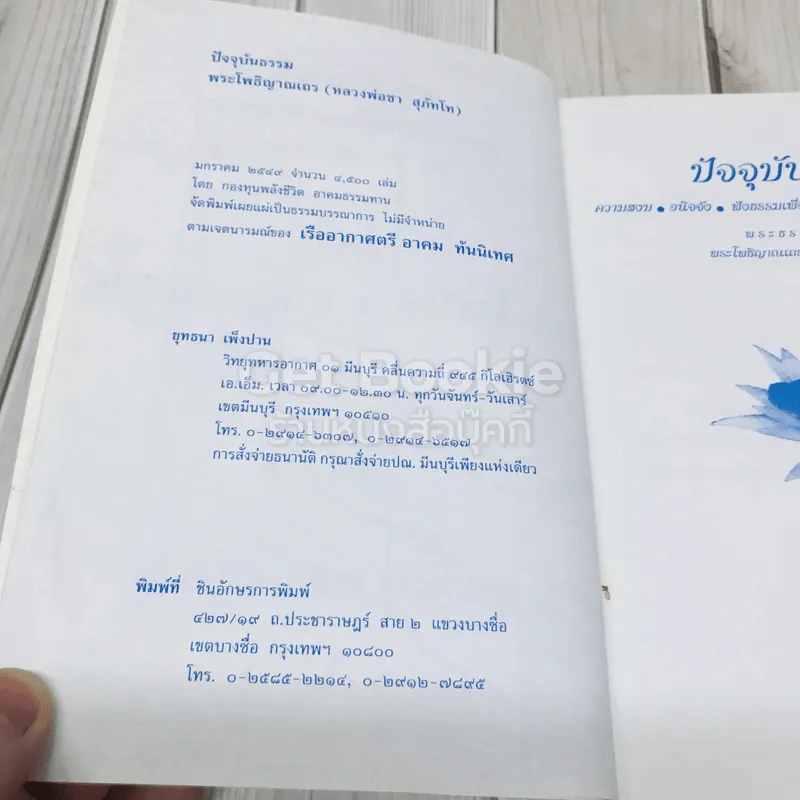 ปัจจุบันธรรม
พระโพธิญาณเถร (หลวงพ่อชา สุภัทโท)
มกราคม ๒๕๔๙ จำนวน ๔,๕๐๐ เล่ม
โดย กองทุนพลังชีวิต อาคมธรรมทาน
จัดพิมพ์เผยแผ่เป็นธรรมบรรณาการ ไม่มีจำหน่าย
ตามเจตนารมณ์ของ เรืออากาศตรี อาคม ทันนิเทศ
ยุทธนา เพ็งปาน
วิทยุทหารอากาศ ๐๑ มีนบุรี คลื่นความถี่ ๙๔๕ กิโลเฮิรตซ์
เอ.เอ็ม. เวลา ๐๙.๐๐-๑๒.๓๐ น. ทุกวันจันทร์-วันเสาร์
เขตมีนบุรี กรุงเทพฯ ๑๐๕๑๐
โทร. ๐-๒๙๑๔-๖๓๐๗, ๐-๒๙๑๔-๖๕๑๗
การสั่งจ่ายธนานัติ กรุณาสั่งจ่ายปณ. มีนบุรีเพียงแห่งเดียว
พิมพ์ที่ ชินอักษรการพิมพ์
๔๒๗/๑๙ ถ.ประชาราษฎร์ สาย ๒ แขวงบางซื่อ
เขตบางซื่อ กรุงเทพฯ ๑๐๘๐๐
โทร. ๐-๒๕๘๕-๒๒๑๔, ๐-๒๙๑๒-๗๘๙๕
ปัจจุบั
ความสงบ • อนิจจัง • ฟังธรรมเพื่
พระธร
พระโพธิญาณเถร
Get Bookie
ร้านหนังสือบุ๊คกี้